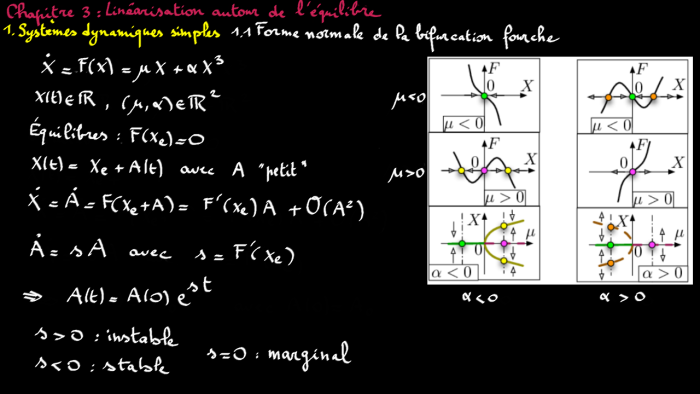 Chapitre 3 : Linéarisation autour de l'équilibre
1. Systèmes dynamiques simples 1.1 Forme normale de la bifurcation fourche
Ẋ = F(X) = μX + αX³
X(t) ∈ ℝ , (μ,α) ∈ ℝ²
Équilibres : F(Xe) = 0
X(t) = Xe + A(t) avec A "petit"
Ẋ = Ȧ = F(Xe+A) = F'(Xe) A + O(A²)
Ȧ = sA avec s = F'(Xe)
⇒ A(t) = A(0) e^{st}
s > 0 : instable
s < 0 : stable
s = 0 : marginal
μ<0
F
0
X
μ < 0
F
0
X
μ < 0
μ>0
F
0
X
μ > 0
F
0
X
μ > 0
X
μ
0
α < 0
X
μ
0
α > 0
α<0
α > 0